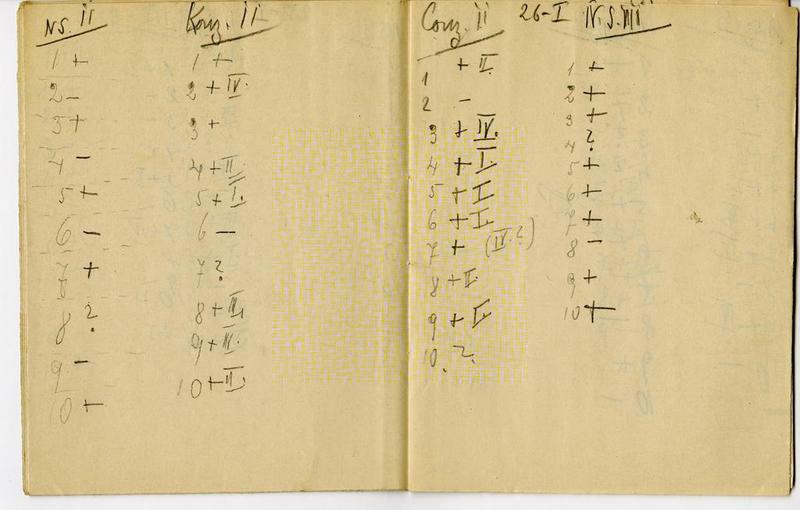 NS. II
1 +
2 –
3 +
4 –
5 +
6 –
7 +
8 ?
9 –
10 +
II
1 +
2 + IV.
3 +
4 + II
5 + I.
6 –
7 ?
8 + III.
9 + II.
10 + II.
II
1 + II.
2 –
3 + IV.
4 + I.
5 + I
6 + I.
7 + (IV?)
8 + II.
9 +
10. ?
26-I N.S. III
1 +
2 +
3 +
4 ?
5 +
6 +
7 +
8 –
9 +
10 +